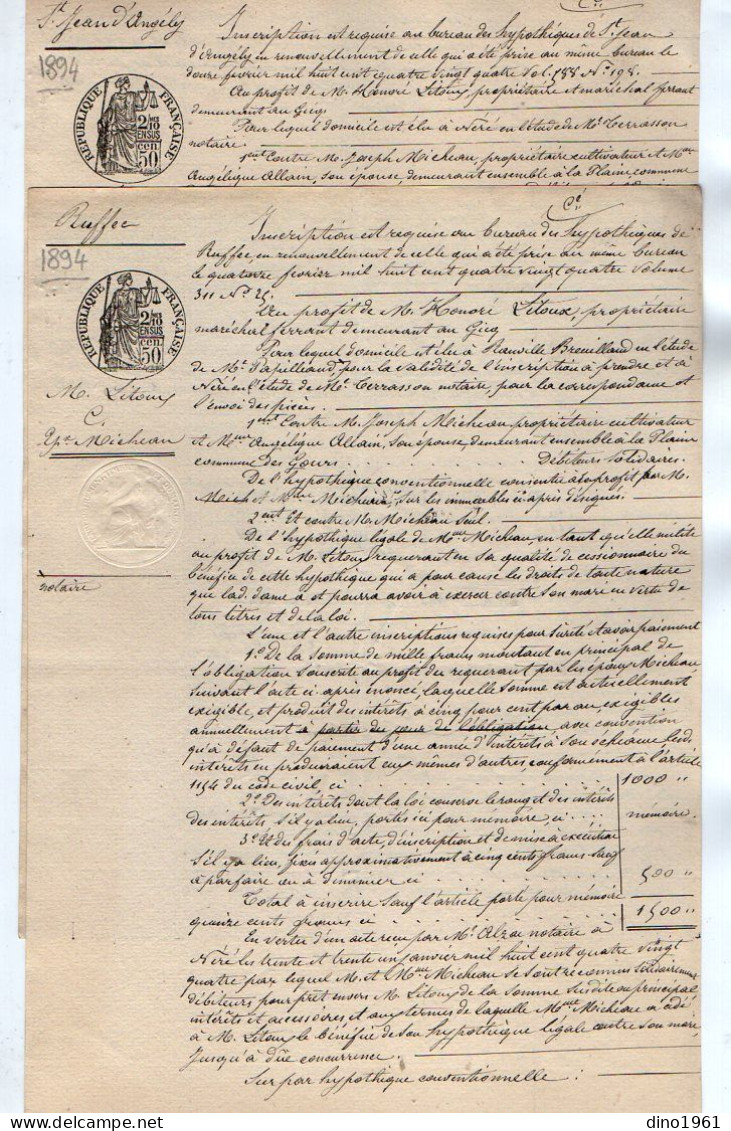 St. Jean d'Angély
1894
RÉPUBLIQUE FRANÇAISE
2/10 EN SUS
50 cen.
Inscription est requise au bureau des hypothèques de St. Jean
d'Angély en renouvellement de celle qui a été prise au même bureau le
douze février mil huit cent quatre vingt quatre vol. 788 No. 198.
Au profit de M. Honoré Litoux, propriétaire et maréchal ferrant
demeurant au Gicq
Pour lequel domicile est élu à Néré en l'étude de Me. Terrasson
notaire.
1ent Contre M. Joseph Micheau, propriétaire cultivateur et Mme
Angélique Allain, son épouse, demeurant ensemble à la Plaine commune
Ruffec
1894
RÉPUBLIQUE FRANÇAISE
2/10 EN SUS
50 cen.
M. Litoux
C.
Micheau
notaire
Ct
Inscription est requise au bureau des hypothèques de
Ruffec, en renouvellement de celle qui a été prise au même bureau
le quatorze février mil huit cent quatre vingt quatre volume
311 No. 25.
Au profit de M. Honoré Litoux, propriétaire
maréchal ferrant demeurant au Gicq
Pour lequel domicile est élu à Ranville Breuillaud en l'étude
de Me. Papilleaud, pour la validité de l'inscription à prendre et à
Néré en l'étude de Me. Terrasson notaire, pour la correspondance et
l'envoi des pièces.
1ent Contre M. Joseph Micheau propriétaire cultivateur
et Mme Angélique Allain, son épouse, demeurant ensemble à la Plaine
commune des Gours Débiteurs solidaires.
De l'hypothèque conventionnelle consentie à son profit par M.
et Mme sur les immeubles ci après désignés.
2ent Et contre M. Micheau seul.
De l'hypothèque légale de Mme Micheau en tant qu'elle milite
au profit de M. Litoux requérant en sa qualité de cessionnaire du
bénéfice de cette hypothèque qui a pour cause les droits de toute nature
que lad. dame a et pourra avoir à exercer contre son mari en vertu de
tous titres et de la loi.
L'une et l'autre inscriptions requises pour sûreté et avoir paiement
1o. De la somme de mille francs montant en principal de
l'obligation souscrite au profit du requérant par les époux Micheau
suivant l'acte ci après énoncé, laquelle somme est actuellement
exigible, et produit des intérêts à cinq pour cent par an, exigibles
annuellement à partir du jour de l'obligation avec convention
qu'à défaut de paiement d'une année d'intérêts à son échéance lesds
intérêts en produiraient eux mêmes d'autres, conformément à l'article
1154 du code civil, ci 1000 "
2o. Des intérêts dont la loi conserve le rang et des intérêts
des intérêts s'il y a lieu, portés ici pour mémoire ci mémoire.
3o. Et des frais d'acte, d'inscription et de mise à exécution
s'il y a lieu, fixés approximativement à cinq cents francs sauf
à parfaire ou à diminuer ci 500 "
Total à inscrire sauf l'article porté pour mémoire
quinze cents francs ci 1500 "
En vertu d'un acte reçu par Me. notaire à
Néré les trente et trente un janvier mil huit cent quatre vingt
quatre par lequel M. et Mme Micheau se sont reconnus solidairement
débiteurs pour prêt envers M. Litoux de la somme susdite en principal
intérêts et accessoires et aux termes de laquelle Mme Micheau a cédé
à M. Litoux le bénéfice de son hypothèque légale contre son mari,
jusqu'à due concurrence.
Sur par hypothèque conventionnelle :
dino1961